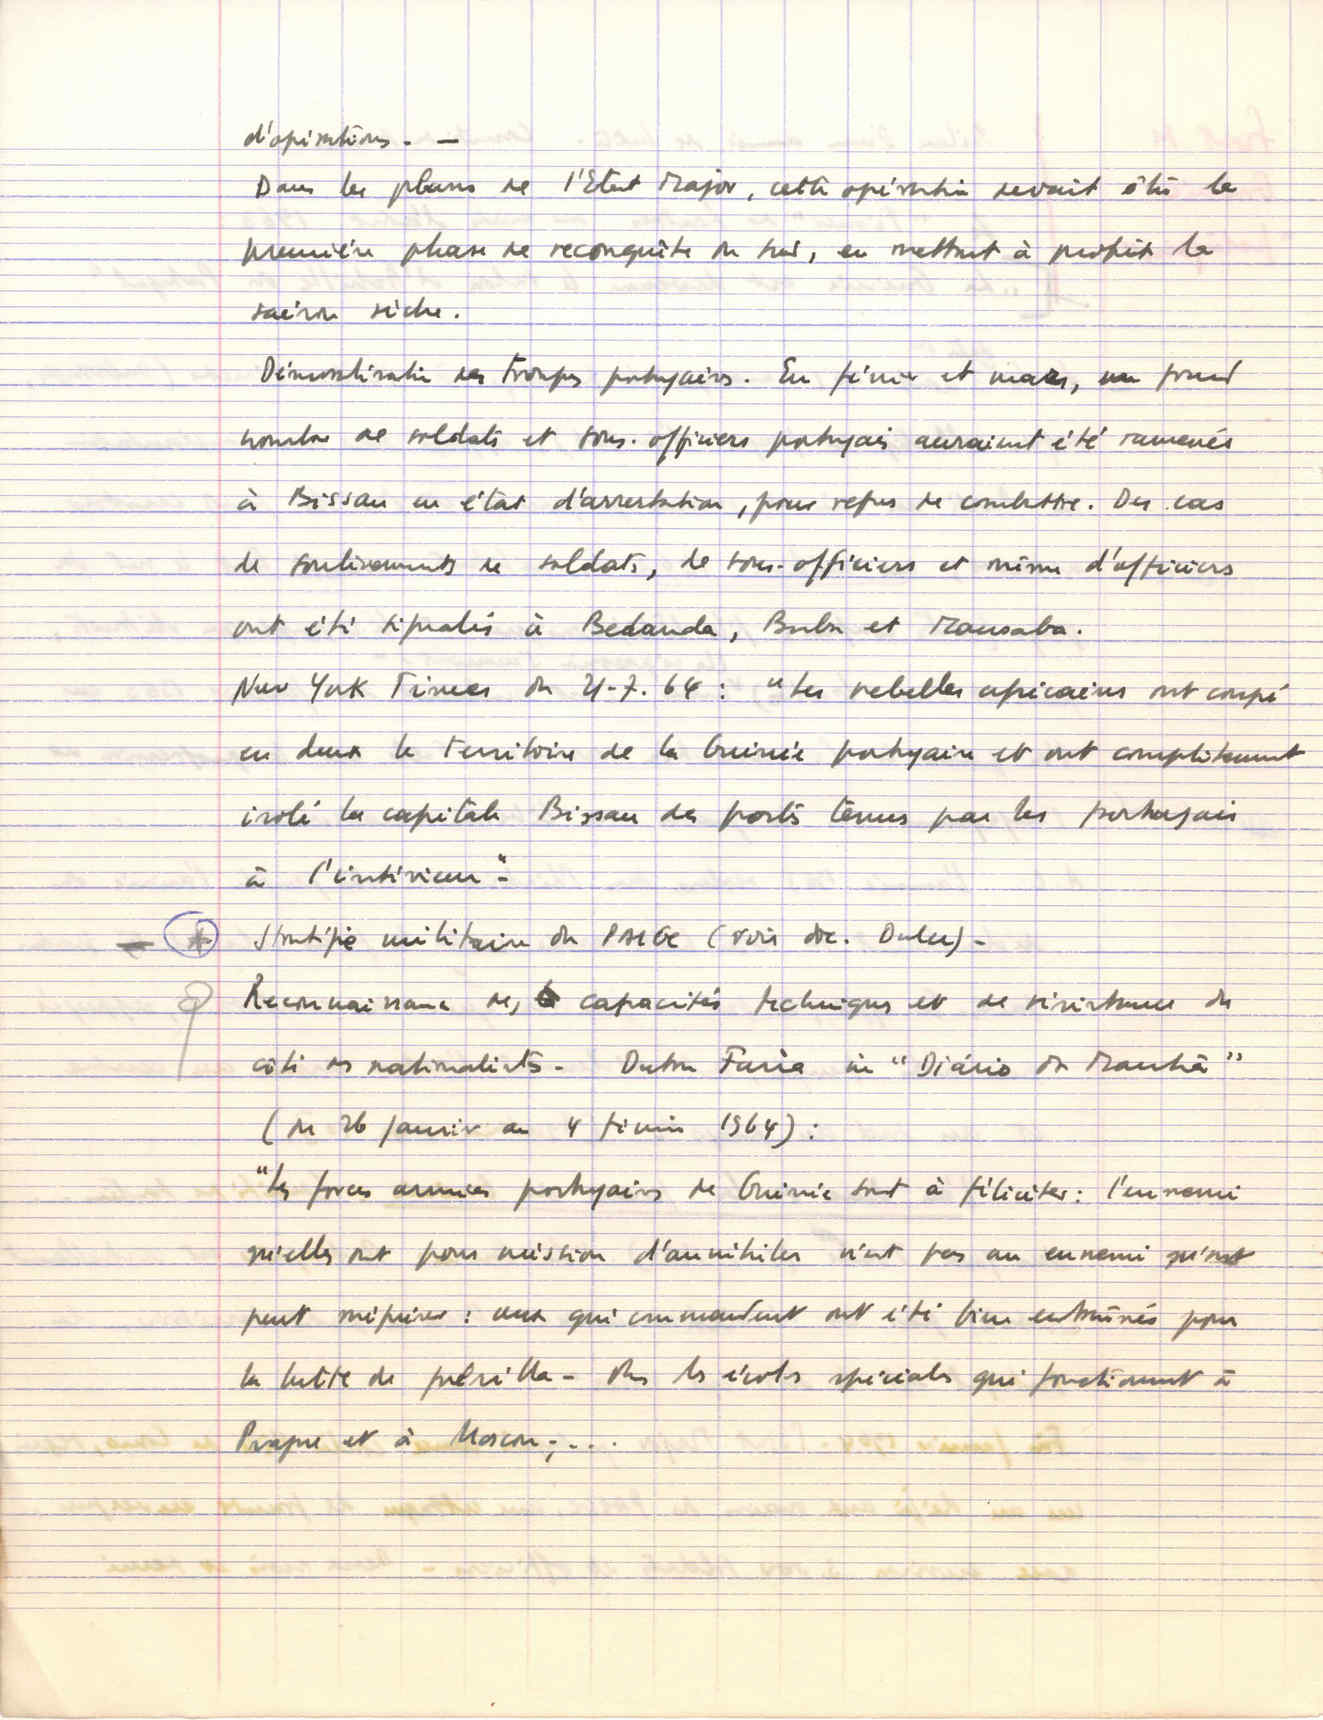 d'opérations. —
Dans les plans de l'Etat Major, cette opération devait être la
première phase de reconquête du sud, en mettant à profit la
saison sèche.
Démoralisation des troupes portugaises. En février et mars, un grand
nombre de soldats et sous-officiers portugais auraient été ramenés
à Bissau en état d'arrestation, pour refus de combattre. Des cas
de soulèvements de soldats, de sous-officiers et même d'officiers
ont été signalés à Bedanda, Buba et Mansaba.
New York Times du 21-7.64 : "Les rebelles africains ont coupé
en deux le territoire de la Guinée portugaise et ont complètement
isolé la capitale Bissau des postes tenus par les portugais
à l'intérieur" -
Stratégie militaire du PAIGC (voir doc. Dulu) -
Reconnaissance des capacités techniques et de résistance du
côté des nationalistes - Dutra Faria in "Diário da Manhã"
(du 26 janvier au 4 février 1964) :
"Les forces armées portugaises de Guinée sont à féliciter : l'ennemi
qu'elles ont pour mission d'annihiler n'est pas un ennemi qu'on
peut mépriser : ceux qui commandent ont été bien entraînés pour
la lutte de guérilla - dans les écoles spéciales qui fonctionnent à
Prague et à Moscou; ...